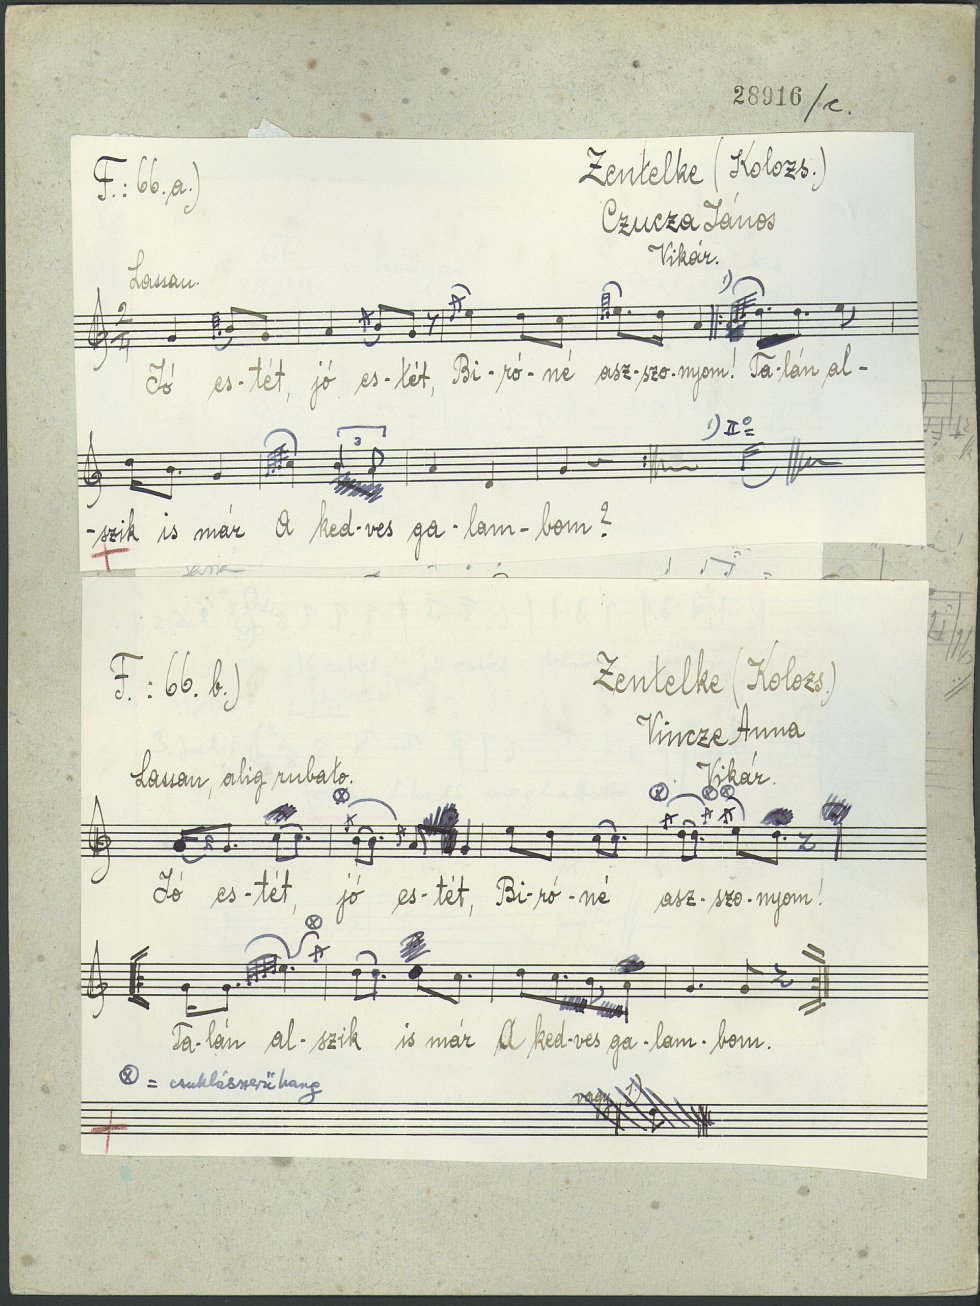 28916/c.
F.: 66. a.)
Zentelke (Kolozs.)
Czucza János
Vikár.
Lassan.
1)
2/4
Jó es-tét, jó es-tét, Bi-ró-né asz-szo-nyom! Ta-lán al-
3
1) II°=
-szik is már A ked-ves ga-lam-bom?
F.: 66. b.)
Zentelke (Kolozs.)
Vincze Anna
Vikár.
Lassan, alig rubato.
Jó es-tét, jó es-tét, Bi-ró-né asz-szo-nyom!
Ta-lán al-szik is már A ked-ves ga-lam-bom.
ⓧ = csuklásszerű hang
vagy 1)